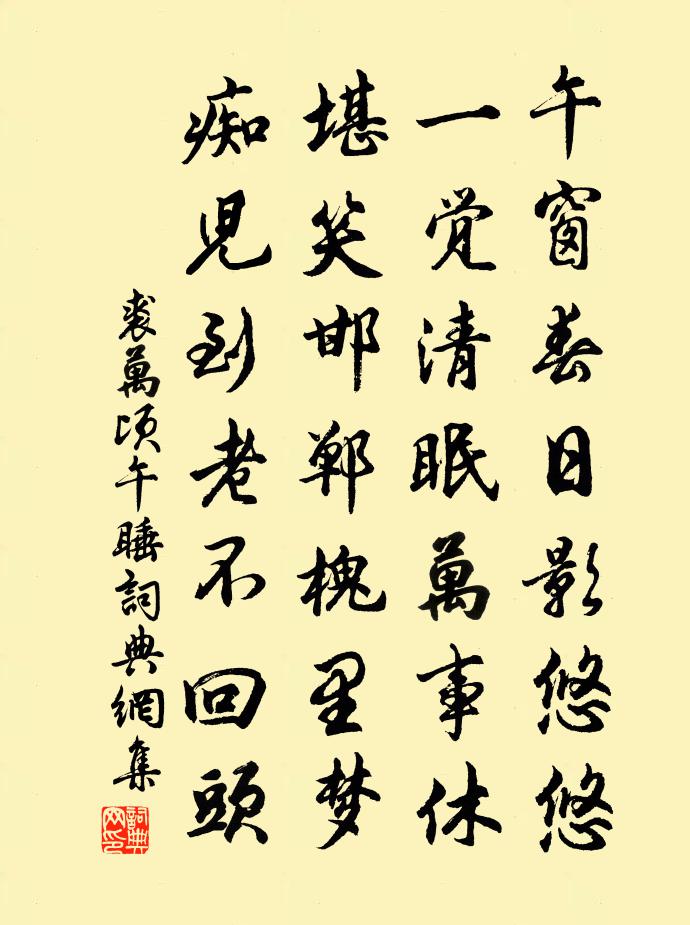 午窗春日影悠悠
一觉清眠萬事休
堪笑邯郸槐里梦
痴児到老不回頭
裘萬頃午睡詞典網集
詞典網印